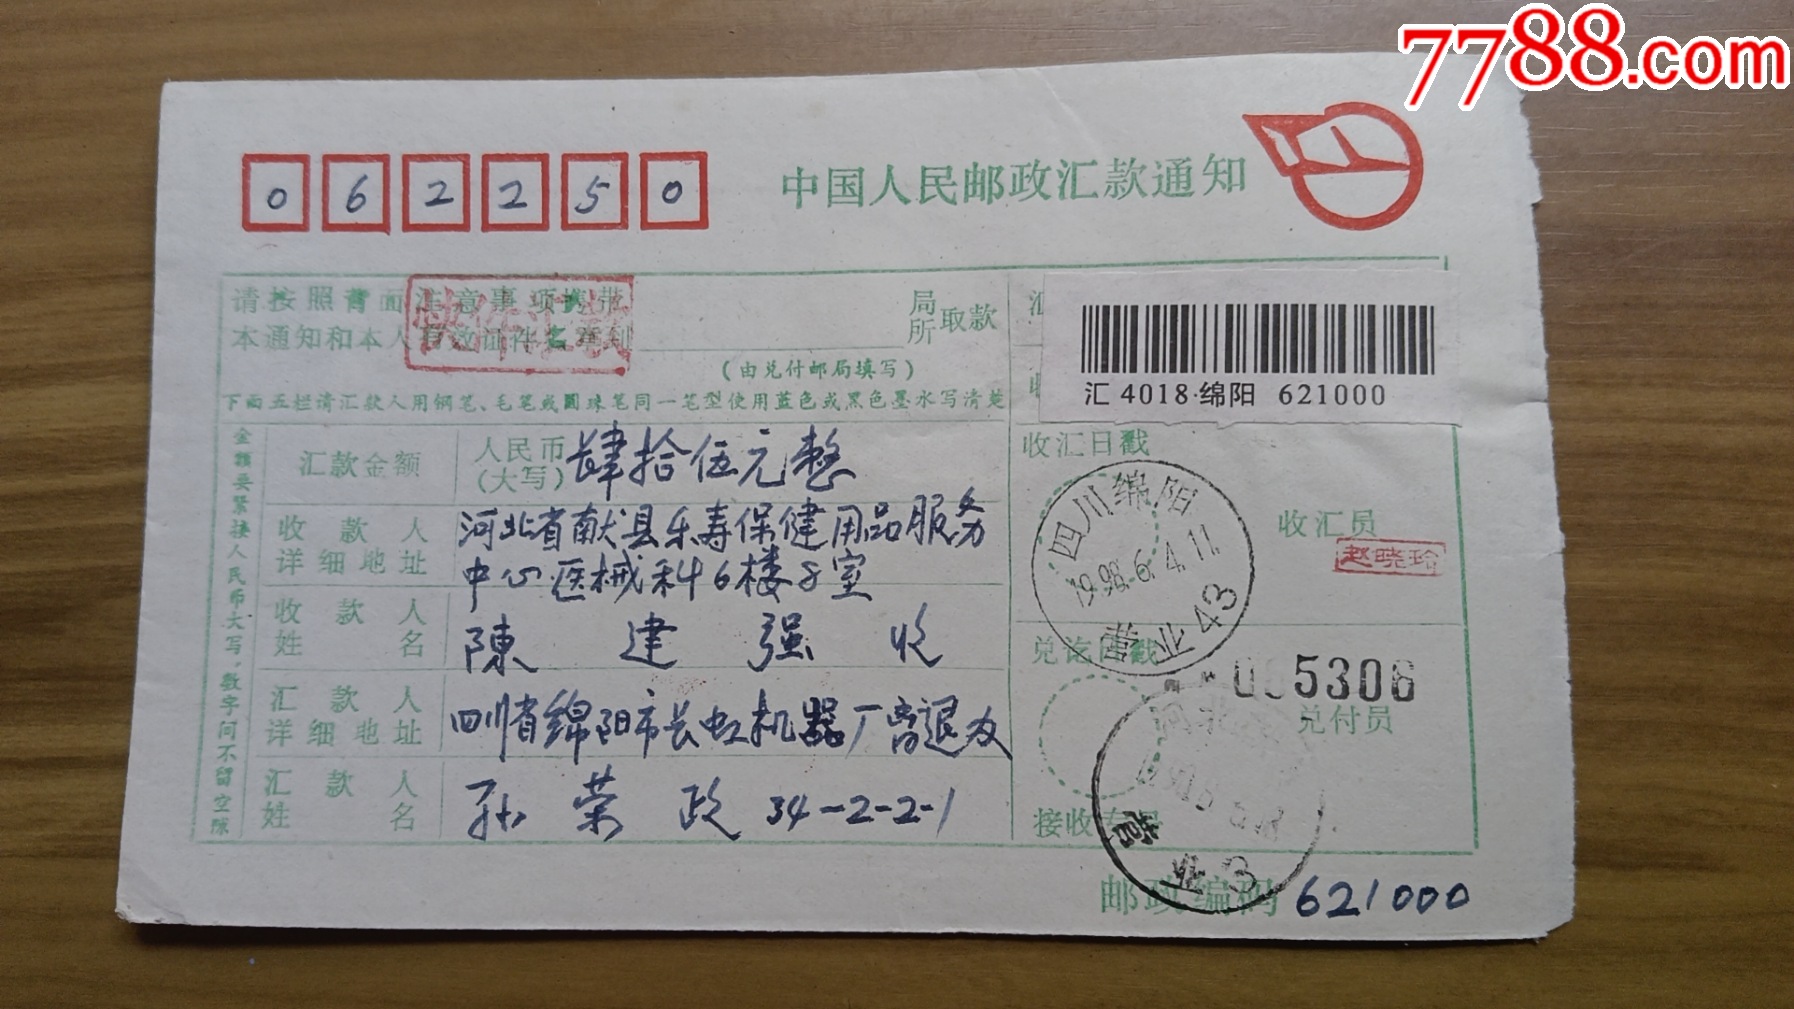 7788.com
062250
中国人民邮政汇款通知
请按照背面注意事项携带
本通知和本人有效证件名章到
局
所
取款
(由兑付邮局填写)
汇 4018·绵阳 621000
下面五栏请汇款人用钢笔、毛笔或圆珠笔同一笔型使用蓝色或黑色墨水写清楚
金额要紧接人民币大写，数字间不留空隙
汇款金额
人民币
(大写)
肆拾伍元整
收款人
详细地址
河北省献县乐寿保健用品服务
中心医械科6楼5室
收款人
姓名
陳建强收
汇款人
详细地址
四川省绵阳市长虹机器厂离退办
汇款人
姓名
孙荣政 34-2-2-1
收汇日戳
四川绵阳
1998.6.4.11
营业43
收汇员
赵晓玲
兑讫日戳
5306
兑付员
河北
营业3
接收专号
邮政编码 621000